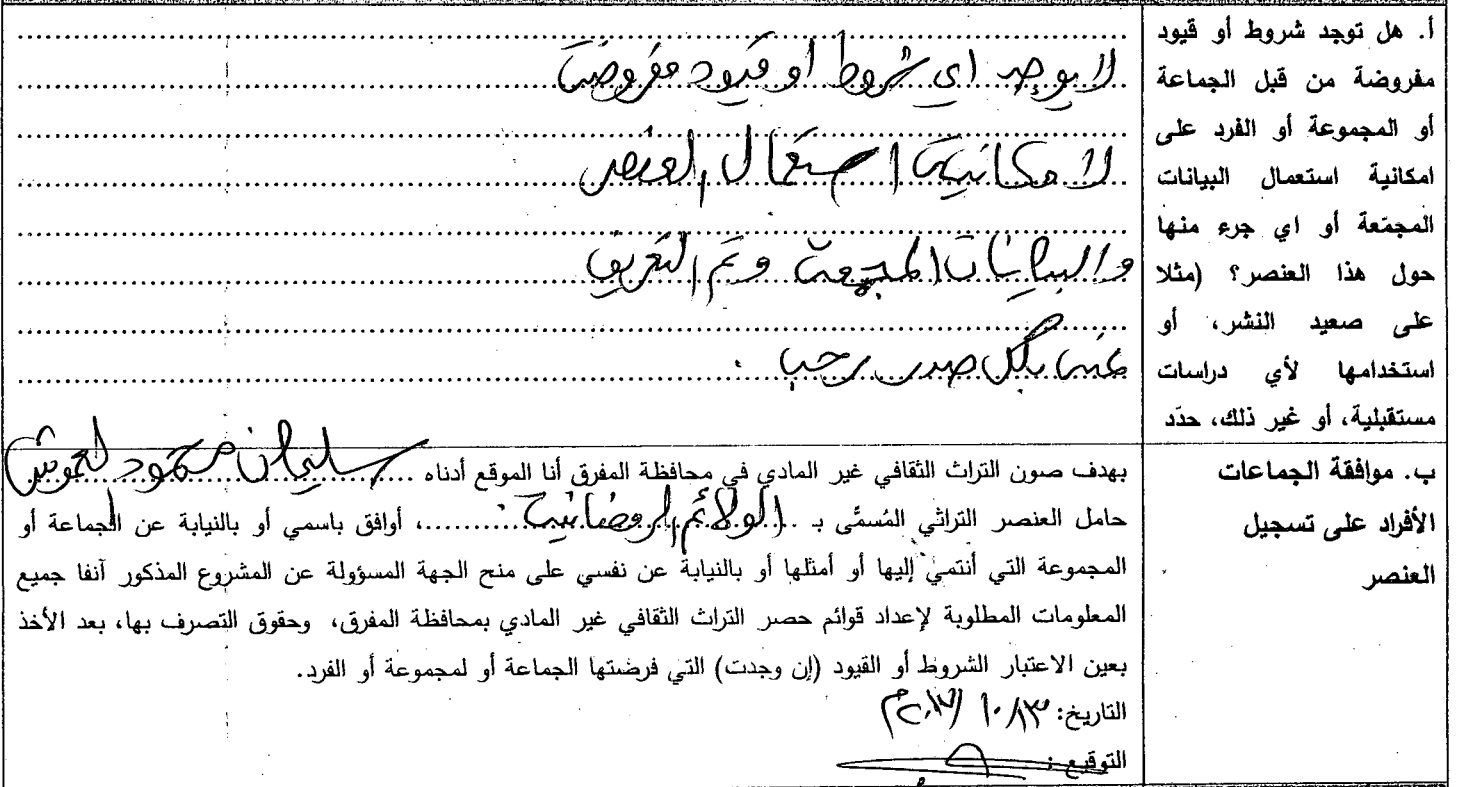 أ. هل توجد شروط أو قيود
مفروضة من قبل الجماعة
أو المجموعة أو الفرد على
امكانية استعمال البيانات
المجمّعة أو اي جرء منها
حول هذا العنصر؟ (مثلا
على صعيد النشر، أو
استخدامها لأي دراسات
مستقبلية، أو غير ذلك، حدّد
لا يوجد اي شروط او قيود مفروضة
لامكانية استعمال العنصر
والبيانات المجمعة وتم التعريف
عنه بكل صدر رحب .
ب. موافقة الجماعات
الأفراد على تسجيل
العنصر
بهدف صون التراث الثقافي غير المادي في محافظة المفرق أنا الموقع أدناه سليمان محمود العموش
حامل العنصر التراثي المُسمَّى بـ الولائم الرمضانية، أوافق باسمي أو بالنيابة عن الجماعة أو
المجموعة التي أنتمي إليها أو أمثلها أو بالنيابة عن نفسي على منح الجهة المسؤولة عن المشروع المذكور آنفا جميع
المعلومات المطلوبة لإعداد قوائم حصر التراث الثقافي غير المادي بمحافظة المفرق، وحقوق التصرف بها، بعد الأخذ
بعين الاعتبار الشروط أو القيود (إن وجدت) التي فرضتها الجماعة أو لمجموعة أو الفرد.
التاريخ: ١٣/ ١٠/ ٢٠١٧م
التوقيع :